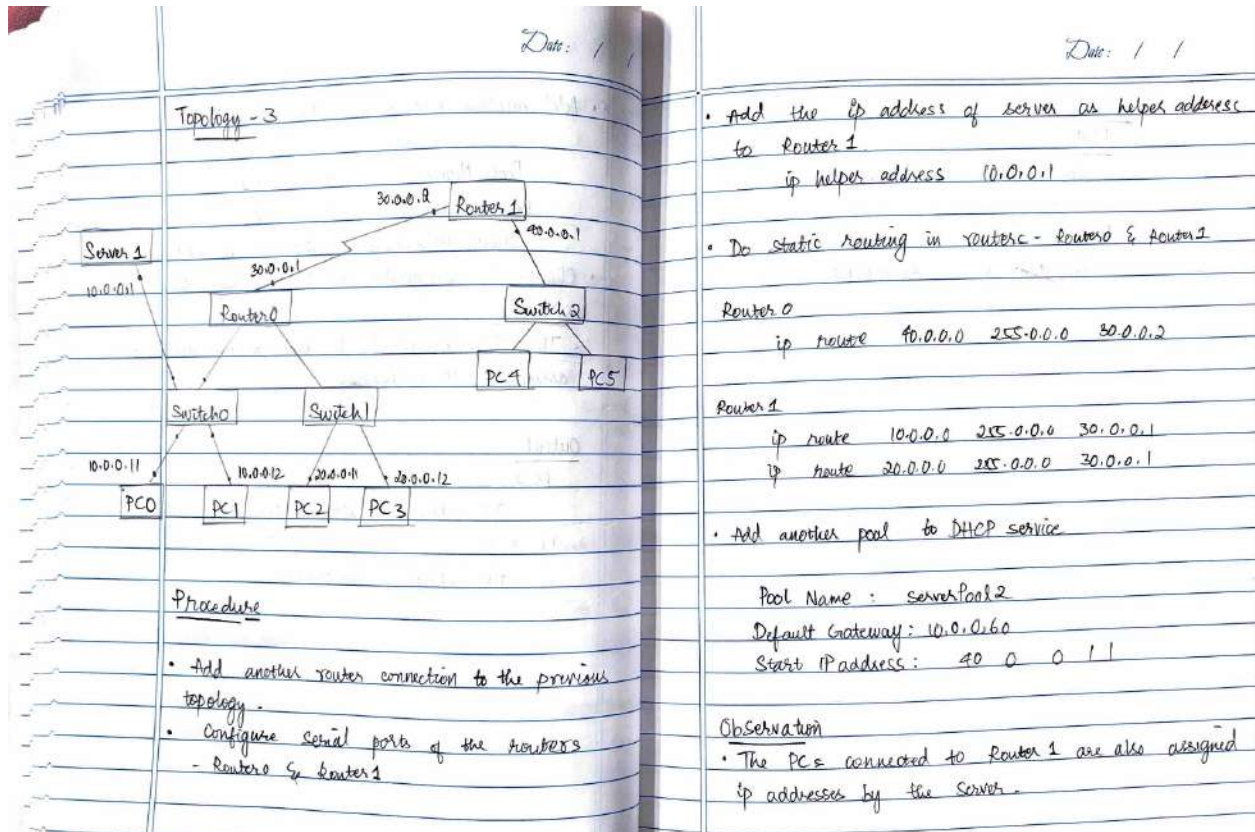 Date: / /
Topology - 3
30.0.0.2
Router 1
40.0.0.1
Server 1
10.0.0.1
30.0.0.1
Router0
Switch 2
PC4
PC5
Switch0
Switch1
10.0.0.11
10.0.0.12
20.0.0.11
20.0.0.12
PC0
PC1
PC2
PC3
Procedure
• Add another router connection to the previous
topology.
• Configure serial ports of the routers
- Router0 & Router1
Date: / /
• Add the ip address of server as helper address
to Router 1
ip helper address 10.0.0.1
• Do static routing in routers - Router0 & Router1
Router 0
ip route 40.0.0.0 255.0.0.0 30.0.0.2
Router 1
ip route 10.0.0.0 255.0.0.0 30.0.0.1
ip route 20.0.0.0 255.0.0.0 30.0.0.1
• Add another pool to DHCP service
Pool Name : serverPool2
Default Gateway : 10.0.0.60
Start IP address : 40 0 0 11
Observation
• The PCs connected to Router 1 are also assigned
ip addresses by the server.